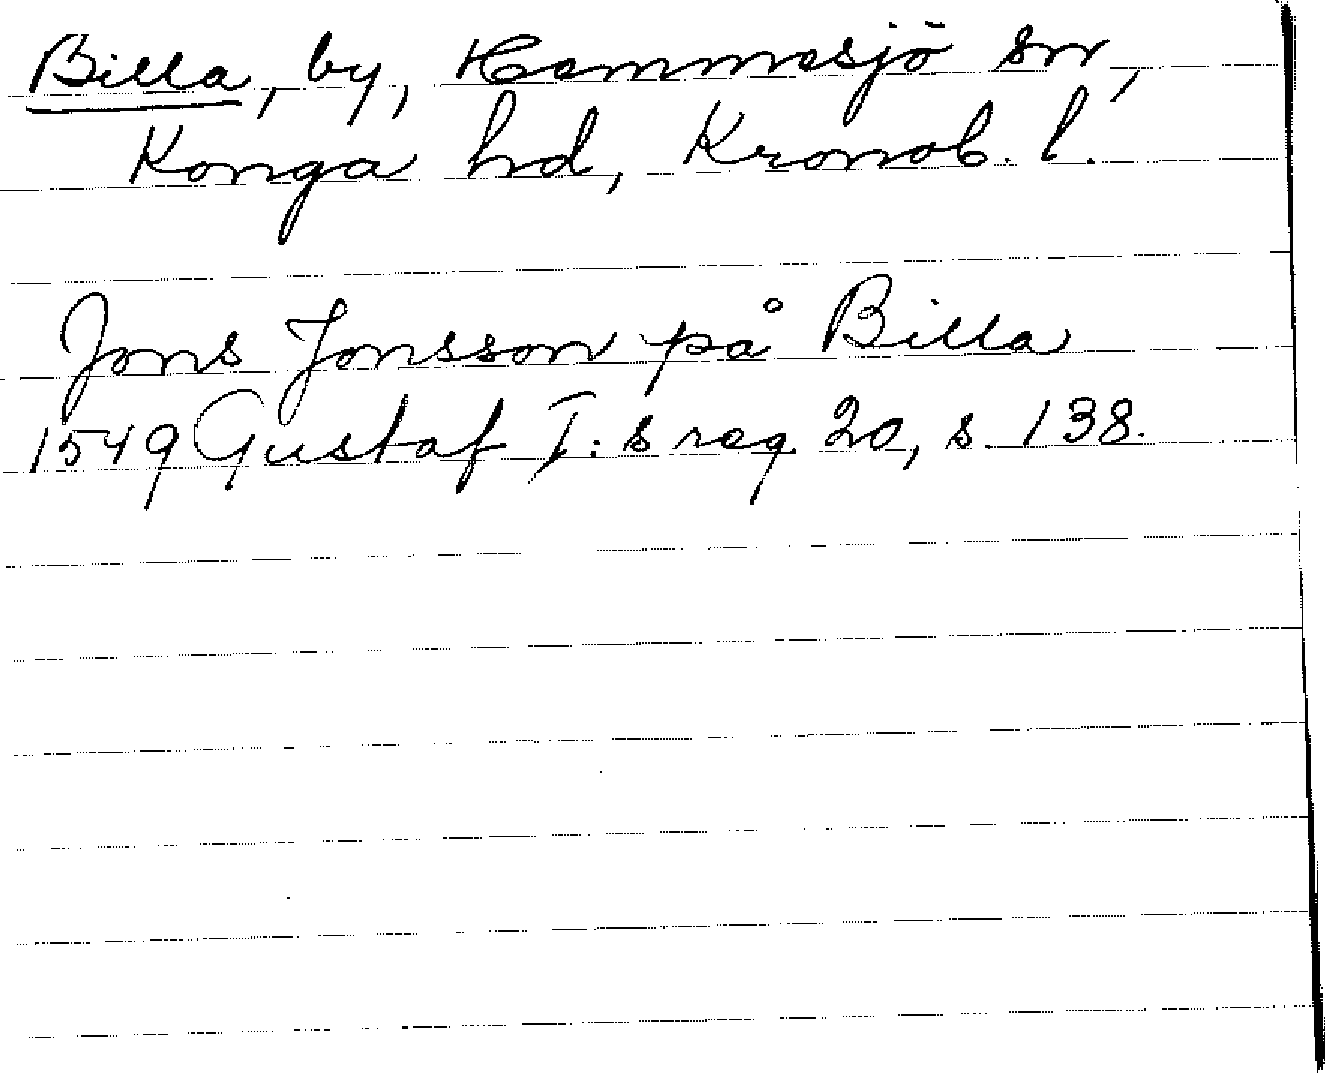 Billa, by, Hemmesjö sn,
Konga hd, Kronob. l.
Jons Jonsson på Billa
1549 Gustaf I:s reg. 20, s. 138.